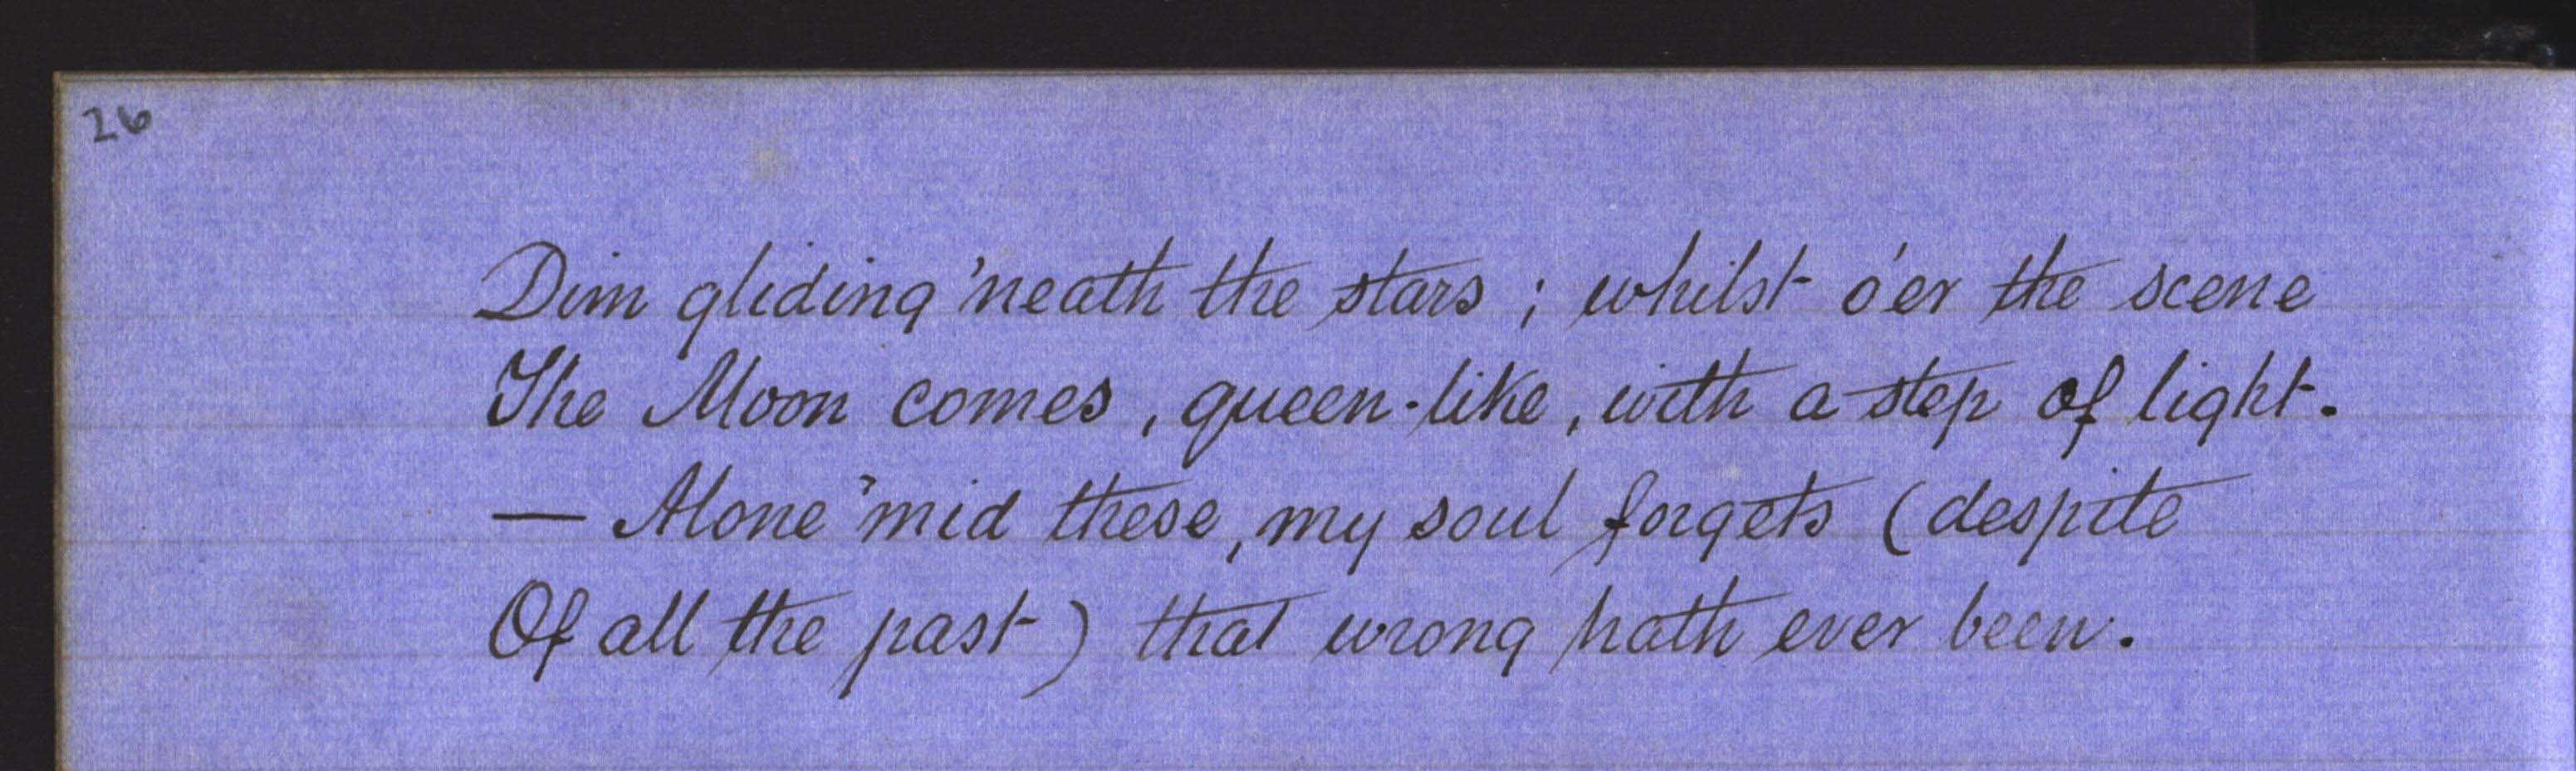 26
Dim gliding 'neath the stars ; whilst o'er the scene
The Moon comes , queen-like , with a step of light .
— Alone 'mid these , my soul forgets (despite
Of all the past ) that wrong hath ever been .